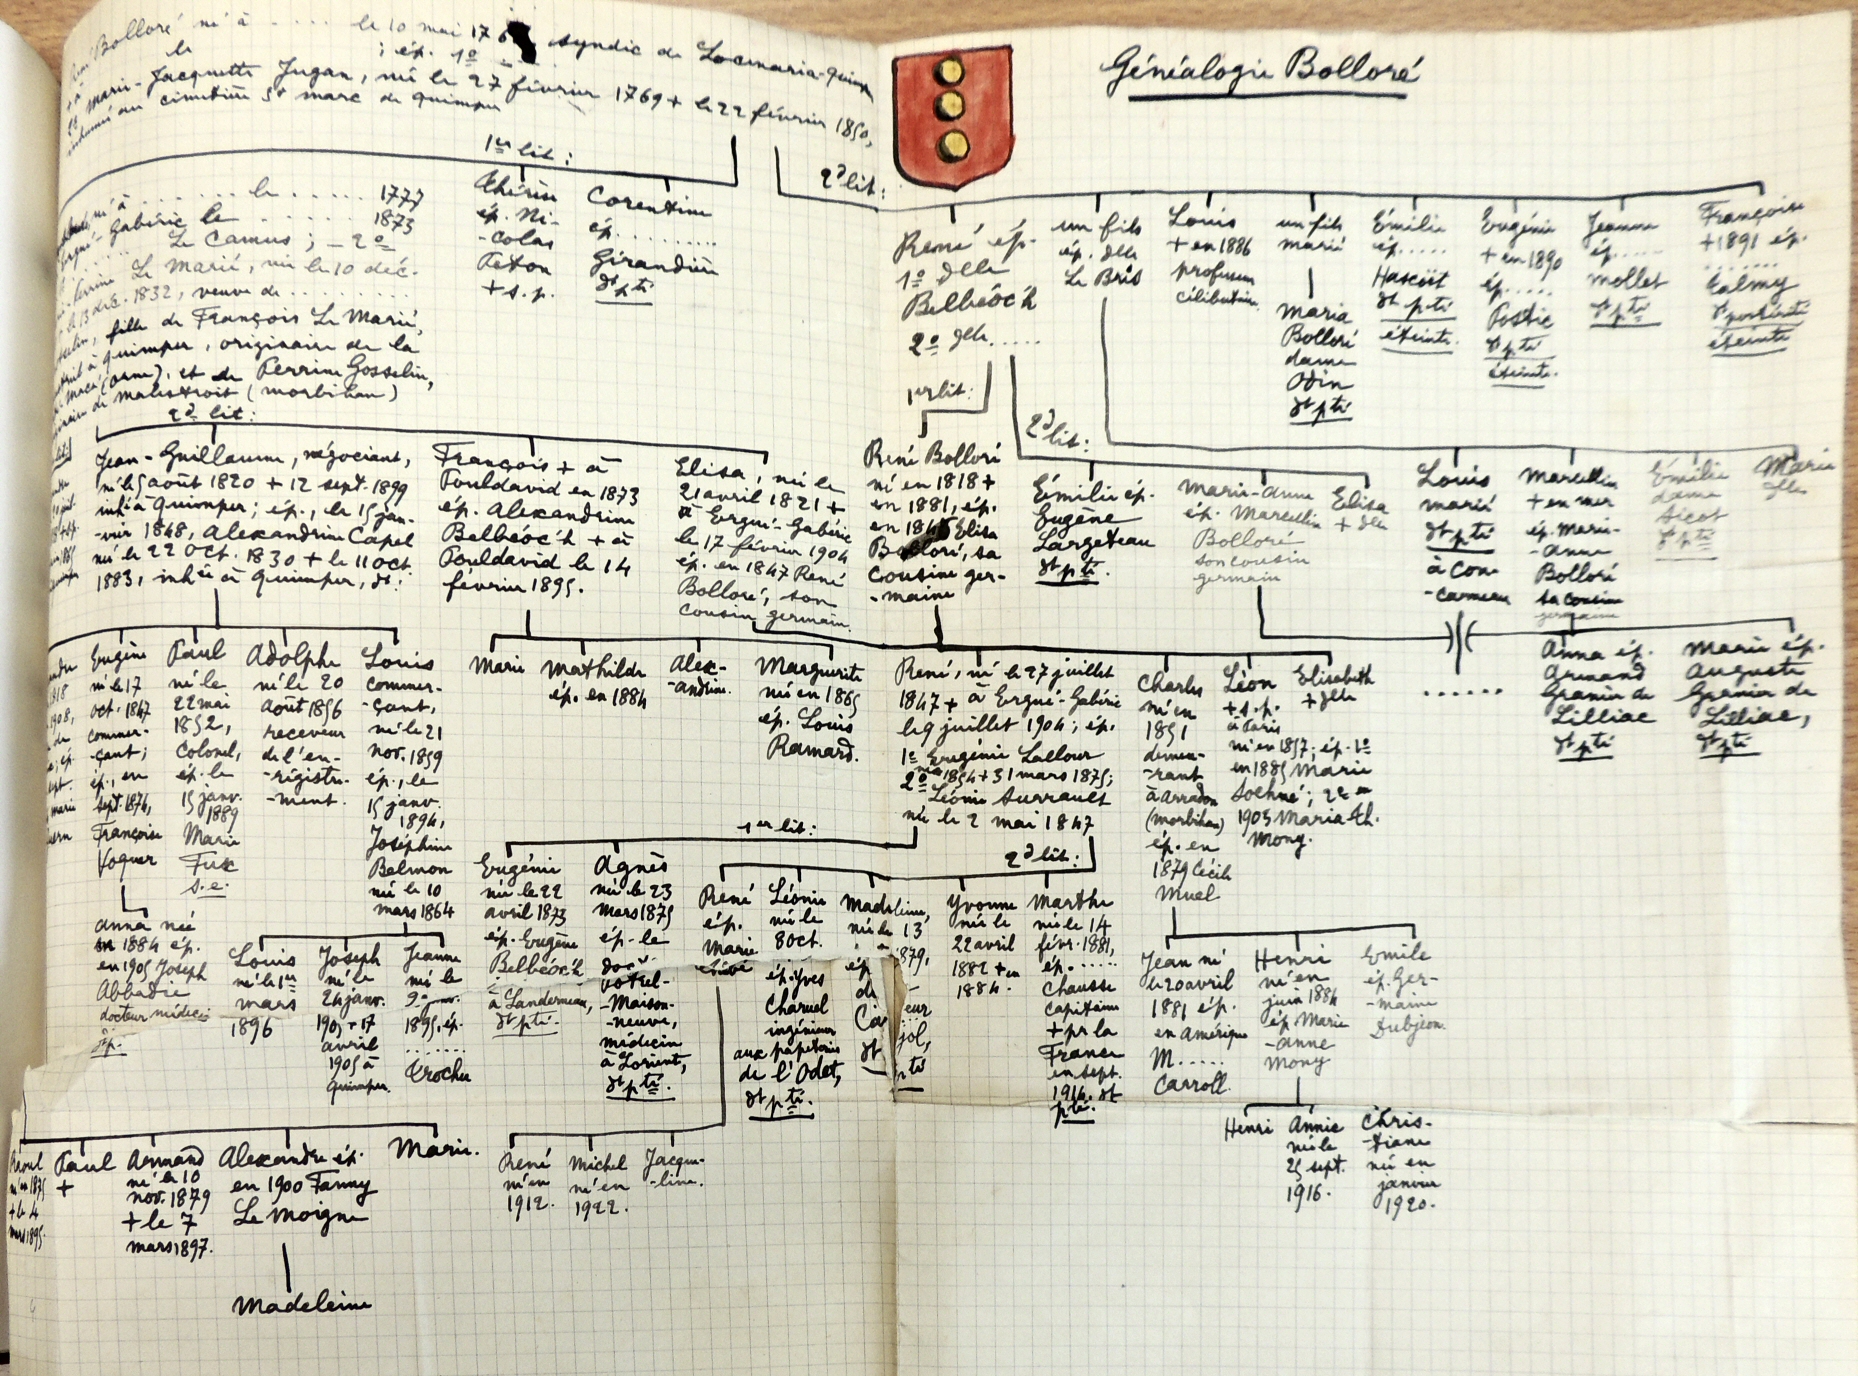 Généalogie Bolloré
Bolloré né à ..... le 10 mai 176
syndic de Locmaria-Quimp
le ; ép. 1º
2º Marie-Jacquette Jugan, née le 27 février 1769 + le 22 février 1850,
inhumée au cimetière St Marc de Quimper
1er lit :
2d lit :
né à ..... le ..... 1777
Ergué-Gabéric le ..... 1873
Le Camus ; - 2º
Perrine Le Marié, née le 10 déc.
le 13 déc. 1832, veuve de ........
Gosselin, fille de François Le Marié,
à Quimper, originaire de la
Macé (Orne), et de Perrine Gosselin,
de Malestroit (Morbihan)
Thérèse
ép. Ni-
-colas
Feton
+ s.p.
Corentine
ép. ..........
Girandière
dt pté
René ép.
1º dlle
Belbéoc'h
2º dlle .....
un fils
ép. dlle
Le Bris
Louis
+ en 1886
professeur
célibataire
un fils
marié
Maria
Bolloré
dame
Odin
dt pté
Émilie
ép. .....
Hascoët
dt pté
éteinte.
Eugénie
+ en 1890
ép. .....
Postic
dt pté
éteinte.
Jeanne
ép. .....
Mollet
dt pté
Françoise
+ 1891 ép.
........
Calmy
dt postérité
éteinte
1er lit :
2d lit :
2d lit :
Jean-Guillaume, négociant,
né le 5 août 1820 + 12 sept. 1899
inh. à Quimper ; ép., le 15 jan-
-vier 1848, Alexandrine Capel
née le 22 oct. 1830 + le 11 oct
1883, inh. à Quimper, dt :
François + à
Pouldavid en 1873
ép. Alexandrine
Belbéoc'h + à
Pouldavid le 14
février 1895.
Elisa, née le
21 avril 1821 +
à Ergué-Gabéric
le 17 février 1904
ép. en 1847 René
Bolloré, son
cousin germain.
René Bolloré
né en 1818 +
en 1881, ép.
en 184 Elisa
Bolloré, sa
cousine ger-
-maine
Émilie ép.
Eugène
Largeteau
dt pté.
Marie-Anne
ép. Marcellin
Bolloré
son cousin
germain
Elisa
+ dlle
Louis
marié
dt pté
à Con-
-carneau
Marcellin
+ en mer
ép. Marie-
-Anne
Bolloré
sa cousine
germaine
Émilie
dame
Sicot
dt pté
Marie
dlle
Eugène
né le 17
oct. 1847
commer-
-çant ;
ép., en
sept. 1874,
Françoise
Voquer
Paul
né le
22 mai
1852,
colonel,
ép. le
15 janv.
1889
Marie
Fux
s.e.
Adolphe
né le 20
août 1856
receveur
de l'en-
-régistre-
-ment.
Louis
commer-
-çant,
né le 21
nov. 1859
ép., le
15 janv.
1894,
Joséphine
Belmon
née le 10
mars 1864
Marie
Mathilde
ép. en 1884
Alex-
-andrine.
Marguerite
née en 1865
ép. Louis
Ramard.
René, né le 27 juillet
1847 + à Ergué-Gabéric
le 9 juillet 1904 ; ép.
1º Eugénie Lallour
née 1854 + 31 mars 1875 ;
2º Léonie Surrault
née le 2 mai 1847
Charles
né en
1851
demeu-
-rant
à Arradon
(Morbihan)
ép. en
1879 Cécile
Muel
Léon
+ s.p.
à Paris
né en 1857 ; ép. 1º
en 1885 Marie
Soehné ; 2º en
1903 Maria Th.
Mony.
Elisabeth
+ dlle
......
Anna ép.
Armand
Grenier de
Lilliac
dt pté
Marie ép.
Auguste
Grenier de
Lilliac,
dt pté
1er lit :
2d lit :
Anna née
en 1884 ép.
en 1905 Joseph
Abbadie
docteur médecin
s.p.
Louis
né le 1er
mars
1896
Joseph
né le
24 janv.
1905 + 17
avril
1905 à
Quimper.
Jeanne
née le
9 nov.
1895, ép.
.......
Crocher
Eugénie
née le 22
avril 1873
ép. Eugène
Belbéoc'h
à Landerneau,
dt pté.
Agnès
née le 23
mars 1875
ép. le
docr
Potrel-
-Maison-
-neuve,
médecin
à Lorient,
dt pté.
René
ép.
Marie
Léonie
née le
8 oct.
ép. Yves
Charuel
ingénieur
aux papeteries
de l'Odet,
dt pté.
Madeleine,
née le 13
1879,
ép
dt pté
Yvonne
née le
22 avril
1882 + en
1884.
Marthe
née le 14
févr. 1881,
ép. .....
Chausse
capitaine
+ pr la
France
en sept.
1914. dt
pté.
Jean né
le 20 avril
1881 ép.
en Amérique
M.....
Carroll.
Henri
né en
juin 1884
ép. Marie
-Anne
Mony
Emile
ép. Ger-
-maine
Dubjeon.
Raoul
né en 1875
+ le 4
mars 1895.
Paul
+
Armand
né le 10
nov. 1879
+ le 7
mars 1897.
Alexandre ép.
en 1900 Fanny
Le Moigne
Marie.
Madeleine
René
né en
1912.
Michel
né en
1922.
Jacque-
-line.
Henri
Annie
née le
25 sept.
1916.
Chris-
-tiane
née en
janvier
1920.